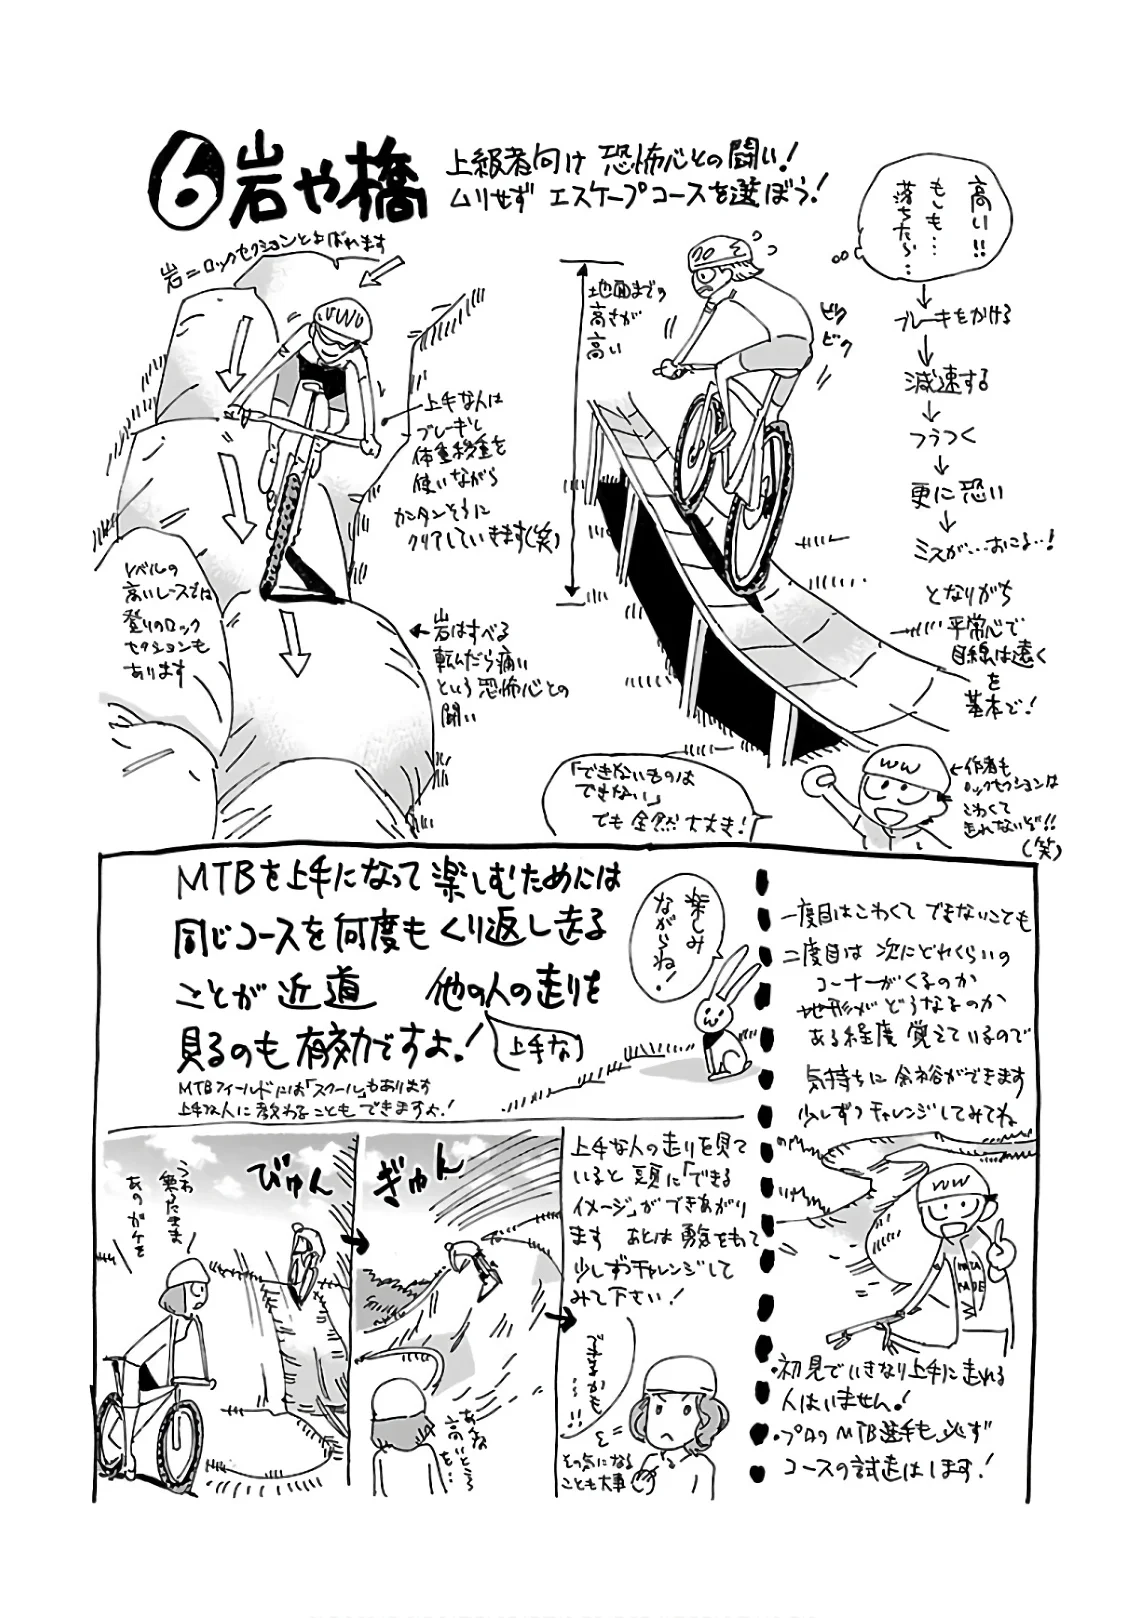 6 岩や橋
上級者向け 恐怖心との闘い!
ムリせず エスケープコースを選ぼう!
岩=ロックセクションとよばれます
上手な人は
ブレーキと
体重移動を
使いながら
カンタンそうに
クリアしていきます(笑)
レベルの
高いレースでは
登りのロック
セクションも
あります
←岩はすべる
転んだら痛い
という恐怖心との
闘い
地面までの
高さが
高い
高い!!
もしも…
落ちたら…
ビク
ビク
ブレーキをかける
↓
減速する
↓
フラつく
↓
更に恐い
↓
ミスが…おこる…!
となりがち
平常心で
目線は遠く
を
基本で!
「できないものは
できない」
でも全然大丈夫!
WW
←作者も
ロックセクションは
こわくて
走れないぞ!!
(笑)
MTBを上手になって楽しむためには
同じコースを何度もくり返し走る
ことが近道 他の人の走りを
見るのも有効ですよ!
上手な
MTBフィールドには「スクール」もあります
上手な人に教わることもできますよ!
楽しみ
ながらね!
一度目はこわくてできないことも
二度目は次にどれくらいの
コーナーがくるのか
地形がどうなるのか
ある程度覚えているので
気持ちに余裕ができます
少しずつチャレンジしてみてね
・初見でいきなり上手に走れる
人はいません!
・プロのMTB選手も必ず
コースの試走はします!
びゅん
うわ
乗ったまま
あのガケを
ぎゅん
あんな
高いところ
を…
上手な人の走りを見て
いると頭に「できる
イメージ」ができあがり
ます あとは勇気をもって
少しずつチャレンジして
みて下さい!
できるかも
…!!
その気になる
ことも大事